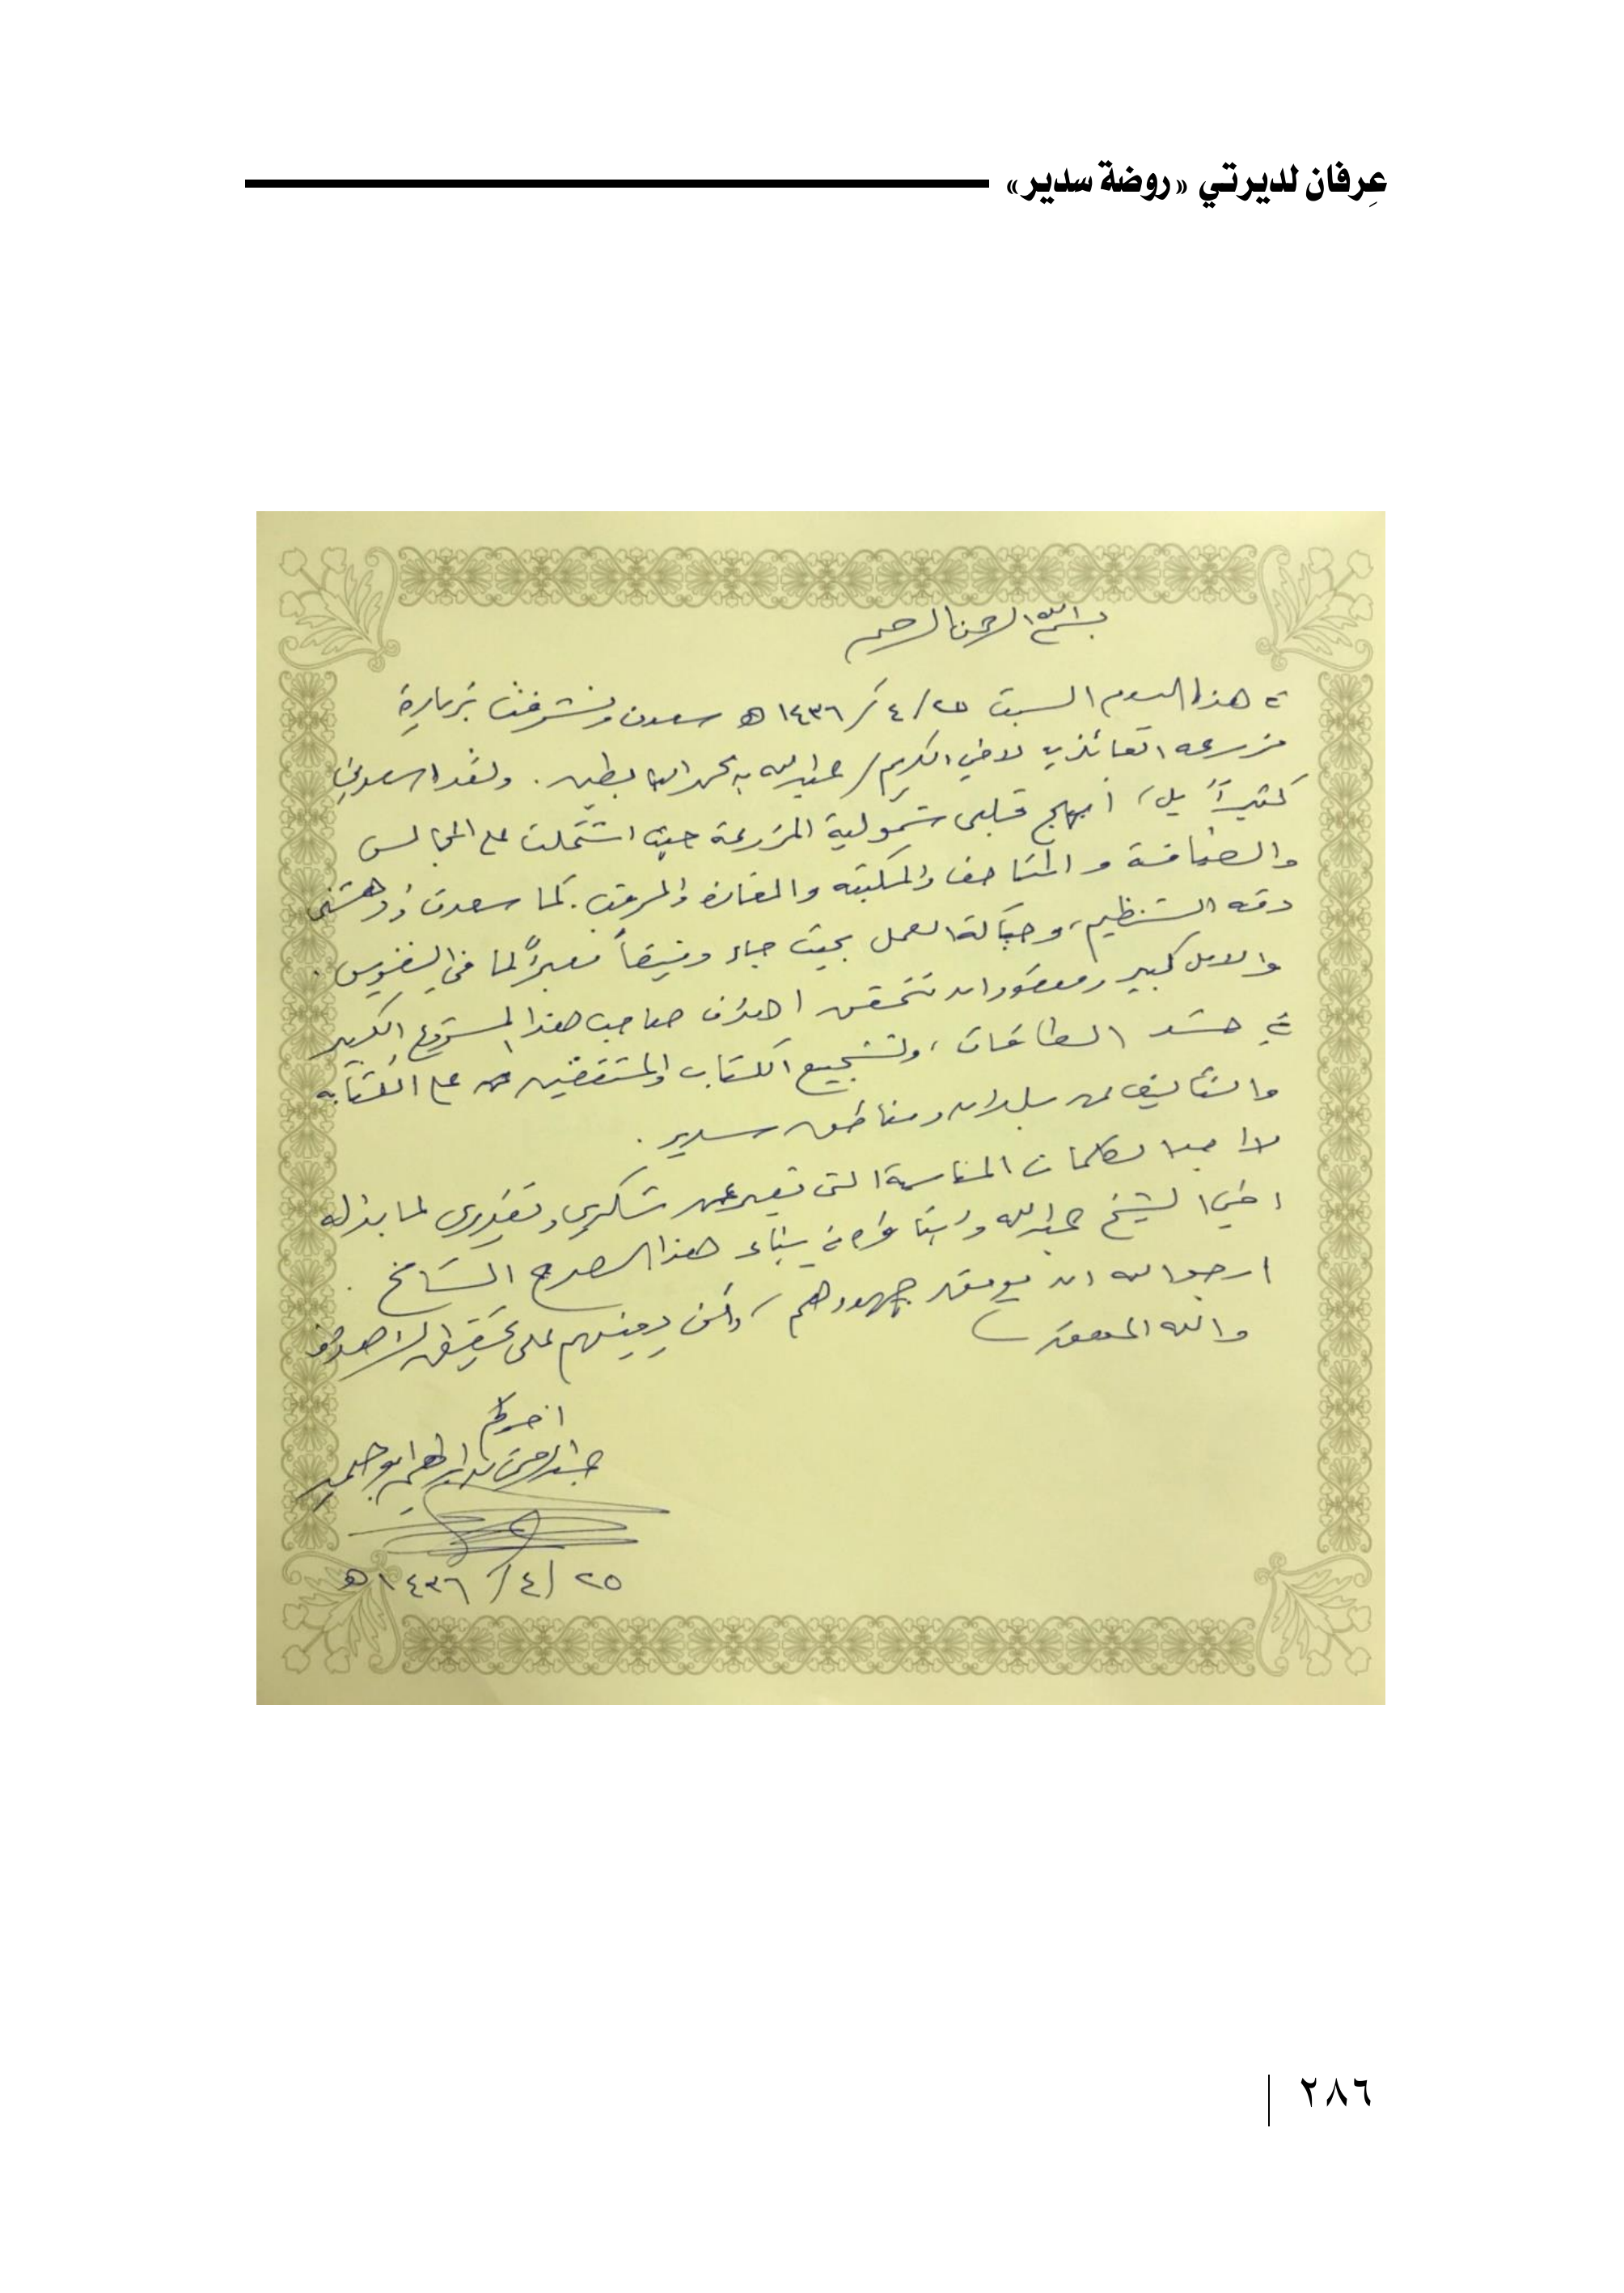 عِرفان لديرتي «روضة سدير»
بسم الله الرحمن الرحيم
في هذا اليوم السبت ٢٥/٤/١٤٣٦هـ سعدت وتشرفت بزيارة
مزرعه لاخي الكريم/ عبدالله بن محمد البابطين. ولقد اسعدني
كثيراً بل، أبهج قلبي شمولية المزرعة حيث اشتملت على المجالس
والضيافة والمتاحف والمكتبه والمغارة والمرقب. كما سعدت وادهشني
دقه التنظيم، العمل بحيث جاء معبراً لما في النفوس.
والامل كبير ومعقود ان تتحقق اهداف صاحب هذا المشروع الكبير
في حشد الطاقات، وتشجيع الكتاب والمثقفين على الكتابه
والتأليف عن بلدان ومناطق سدير.
لا اجد الكلمات المناسبة التي تعبر عن شكري وتقديري لما بذله
اخي الشيخ عبدالله في بناء هذا الصرح الشامخ.
ارجو الله ان يوفق جهودهم، وأن يعينهم على تحقيق الاهداف
والله الموفق
اخوكم
عبدالرحمن بن ابراهيم ابوحيمد
٢٥/٤/١٤٣٦هـ
٢٨٦